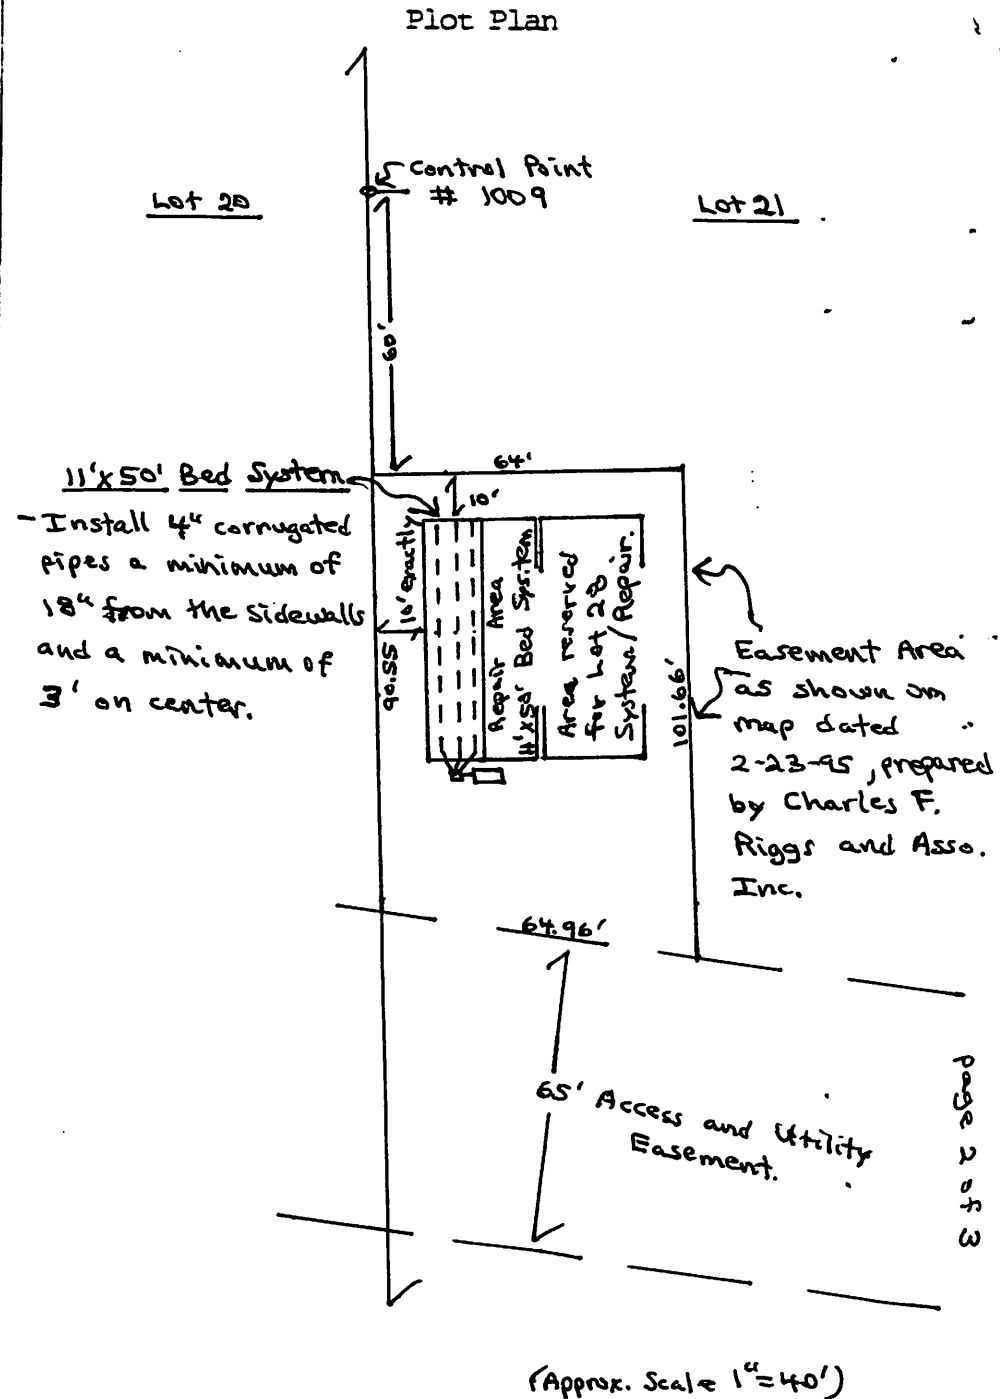 Plot Plan
Control Point
# 1009
Lot 20
Lot 21
60'
64'
11'x50' Bed System
- Install 4" corrugated
pipes a minimum of
18" from the sidewalls
and a minimum of
3' on center.
10'
10' exactly
90.55
Repair Area
11'x50' Bed System
Area reserved
for Lot 20
System/Repair.
101.66'
Easement Area
as shown on
map dated
2-23-95, prepared
by Charles F.
Riggs and Asso.
Inc.
64.96'
65' Access and Utility
Easement.
page 2 of 3
(Approx. Scale 1"=40')